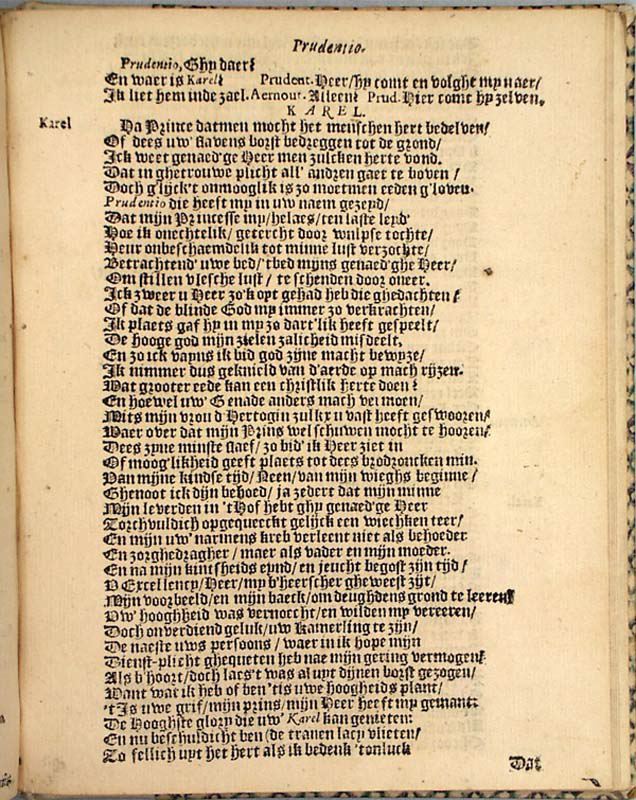 Prudentio.
Prudentio, Ghy daer?
En waer is Karel? Prudent. Heer/hy comt en volght my naer/
Ik liet hem inde zael. Aernout. Alleen? Prud. Hier comt hy zelven.
KAREL.
Karel
Ha Prince datmen mocht het menschen hert bedelven/
Of dees uw' slavens borst bedreggen tot de grond/
Ick weet genaed'ge Heer men zulcken herte vond.
Dat in ghetrouwe plicht all' andren gaet te boven/
Doch g'lijck't onmooglik is zo moetmen eeden g'loven.
Prudentio die heeft my in uw naem gezeyd/
Dat mijn Princesse my/helaes/ten laste leyd'
Hoe ik onechtelik/ getercht door wulpse tochte/
Heur onbeschaemdelik tot minne lust verzochte/
Betrachtend' uwe bed/'tbed mijns genaed'ghe Heer/
Om stillen vlesche lust/ te schenden door oneer.
Ick zweer u Heer zo'k opt gehad heb die ghedachten/
Of dat de blinde God my immer zo verkrachten/
Ik plaets gaf hy in my zo dart'lik heeft gespeelt/
De hooge god mijn zielen zalicheid misdeelt.
En zo ick vayns ik bid god zijne macht bewyze/
Ik nimmer dus geknield van d'aerde op mach rijzen.
Wat grooter eede kan een christlik herte doen?
En hoewel uw' Genade anders mach vermoen/
Mits mijn vrou d'Hertogin zulkx u vast heeft geswooren/
Waer over dat mijn Prins wel schuwen mocht te hooren/
Dees zyne minste slaef/ zo bid' ik Heer ziet in
Of moog'likheid geeft plaets tot dees brodroncken min.
Van mijne kindse tijd/ Neen/van mijn wieghs beginne/
Ghenoot ick dijn behoed/ ja zedert dat mijn minne
Mijn leverden in 't Hof hebt ghy genaed'ge Heer
Torchvuldich opgequeeckt gelijck een wiechken teer/
En mijn uw' narinens kreb verleent niet als behoeder
En zorghedragher/ maer als vader en mijn moeder.
En na mijn kintsheids eynd/en jeucht begost zijn tijd/
V Excellency/Heer/my b'heerscher gheweest zijt/
Mijn voorbeeld/en mijn baeck/om deughdens grond te leeren/
Vw' hooghheid was vernoecht/en wilden my vereeren/
Doch onverdiend geluk/uw Kamerling te zijn/
De naeste uws persoons/ waer in ik hope mijn
Dienst-plicht ghequeten heb nae mijn gering vermogen/
Als b'hoort/doch laes't was al uyt dijnen borst gezogen/
Want wat ik heb of ben 'tis uwe hoogheids plant/
't Is uwe grif/mijn prins/mijn Heer heeft my gemant:
De Hooghste glory die uw' Karel kan genieten:
En nu beschuldicht ben (de tranen lacy vlieten/
Zo fellich uyt het hert als ik bedenk 'tonluck
Dat